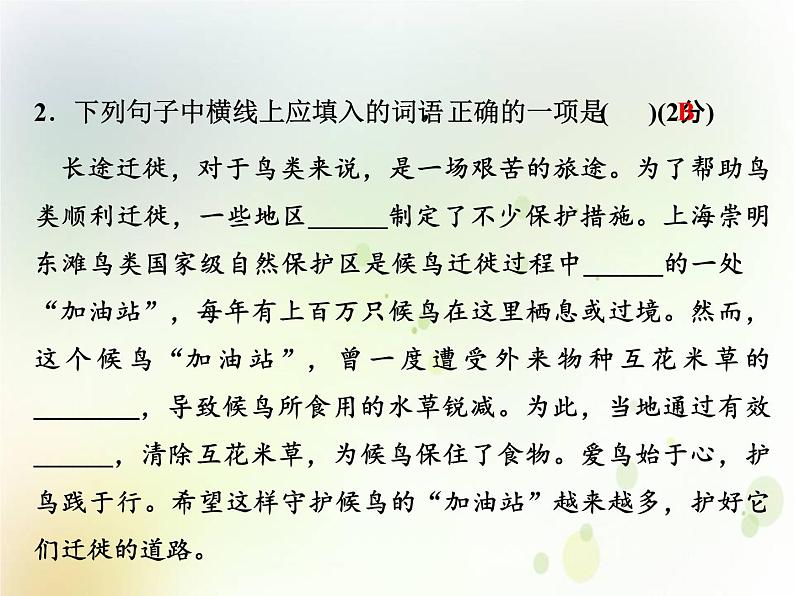 2．下列句子中横线上应填入的词语正确的一项是(  B  )(2分)
长途迁徙，对于鸟类来说，是一场艰苦的旅途。为了帮助鸟
类顺利迁徙，一些地区______制定了不少保护措施。上海崇明
东滩鸟类国家级自然保护区是候鸟迁徙过程中______的一处
“加油站”，每年有上百万只候鸟在这里栖息或过境。然而，
这个候鸟“加油站”，曾一度遭受外来物种互花米草的
________，导致候鸟所食用的水草锐减。为此，当地通过有效
______，清除互花米草，为候鸟保住了食物。爱鸟始于心，护
鸟践于行。希望这样守护候鸟的“加油站”越来越多，护好它
们迁徙的道路。